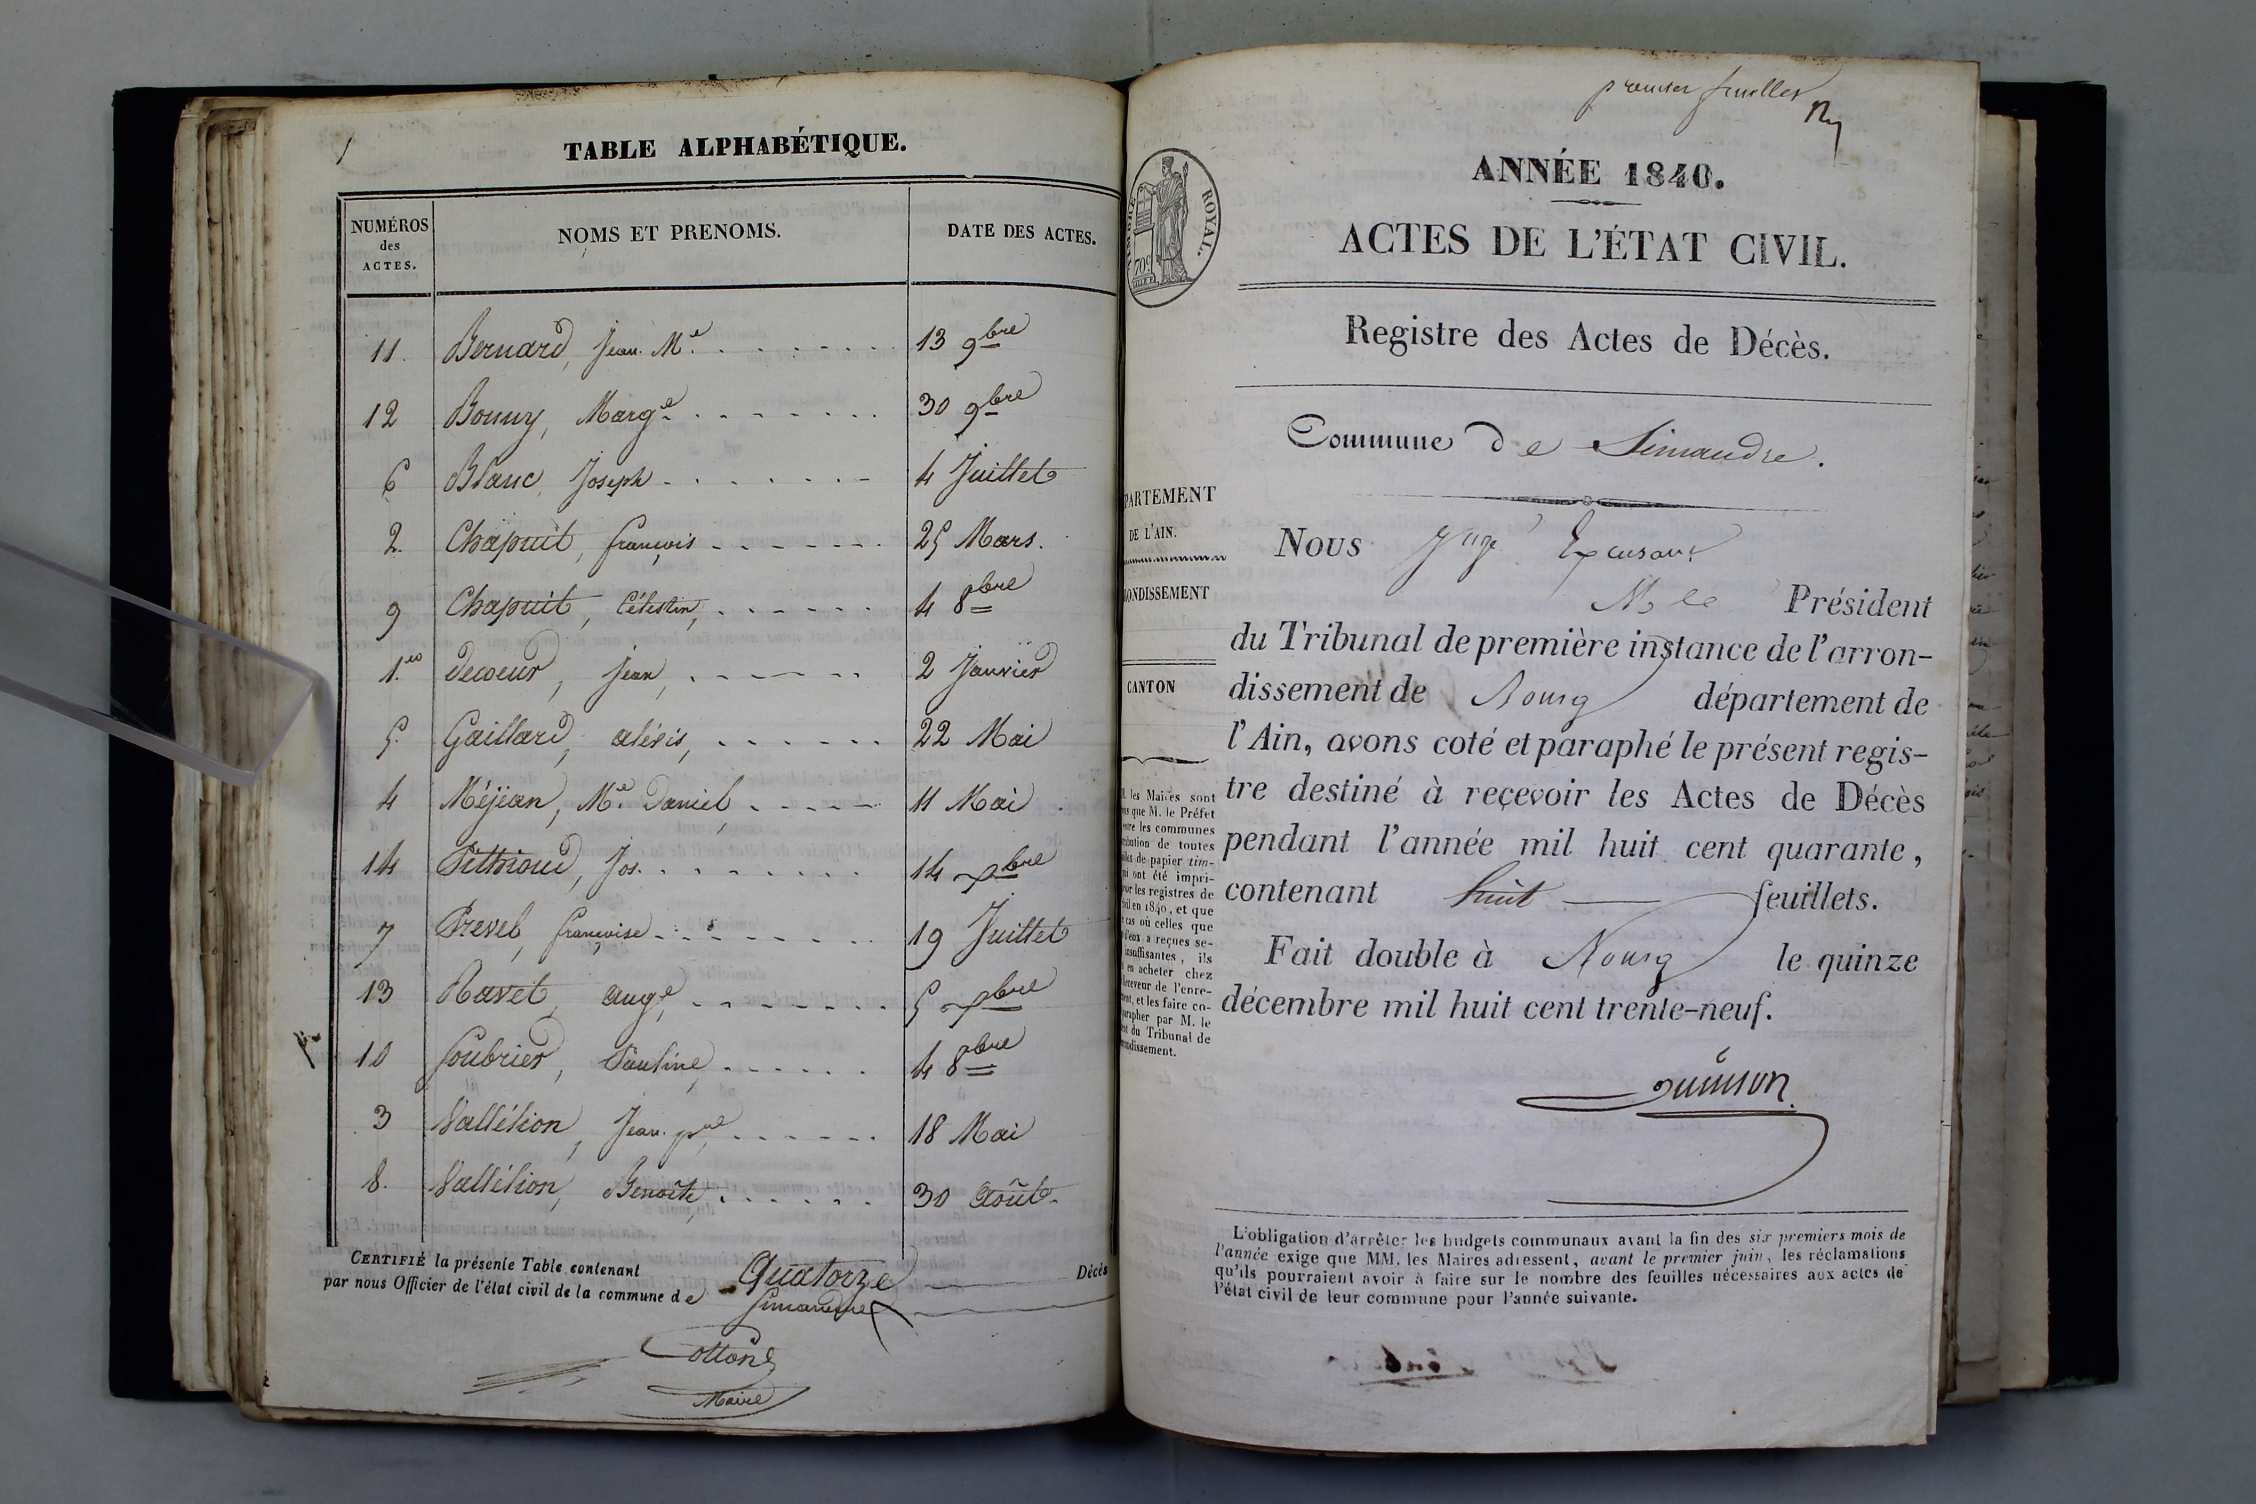 TABLE ALPHABÉTIQUE.
NUMÉROS des ACTES.
NOMS ET PRENOMS.
DATE DES ACTES.
11. Bernard, Jean. M.e 13 9bre
12 Bonny, Marg.e 30 9bre
6 Blanc Joseph 4 Juillet
2. Chapuit, françois 25 Mars.
9 Chapuit, Célestin, 4 8bre
1.er decoeur, Jean, 2 Janvier
5. Gaillard, alexis, 22 Mai
4 Méjean, M.e Daniel, 11 Mai
14 Péthioud, Jos. 14 xbre
7 Prevel, françoise 19 Juillet
13 Ravet, aug.e, 5 xbre
10 Soubrier, Pauline, 4 8bre
3 Vallélion, Jean 18 Mai
8. Vallélion, Benoîte, 30 août.
CERTIFIÉ la présente Table contenant Quatorze Décès
par nous Officier de l'état civil de la commune de Simandre
Cotton
Maire
premier feuillet
ANNÉE 1840.
ACTES DE L'ÉTAT CIVIL.
ROYAL.
70c
Registre des Actes de Décès.
Commune de Simandre.
PARTEMENT
DE L'AIN.
ONDISSEMENT
CANTON
Nous Juge
Président
du Tribunal de première instance de l'arron-
dissement de Bourg département de
l'Ain, avons coté et paraphé le présent regis-
tre destiné à reçevoir les Actes de Décès
pendant l'année mil huit cent quarante,
contenant huit feuillets.
Fait double à Bourg le quinze
décembre mil huit cent trente-neuf.
les Maires sont
que M. le Préfet
les communes
de toutes
de papier tim-
ont été impri-
les registres de
en 1840, et que
cas où celles que
a reçues se-
insuffisantes, ils
en acheter chez
de l'enre-
et les faire co-
par M. le
du Tribunal de
L'obligation d'arrêter les budgets communaux avant la fin des six premiers mois de
l'année exige que MM. les Maires adressent, avant le premier juin, les réclamations
qu'ils pourraient avoir à faire sur le nombre des feuilles nécessaires aux actes de
l'état civil de leur commune pour l'année suivante.